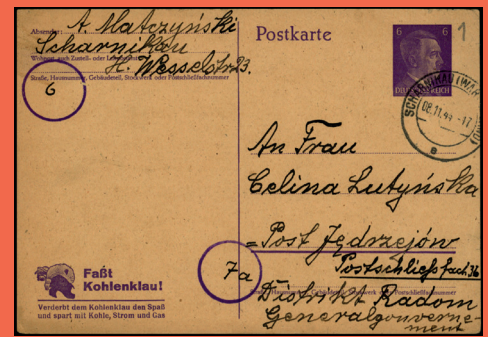 Absender: A. Matczyński
Scharnikau
Wohnort, auch Zustell- oder Leitpostamt
H. Wesselstr 23.
Straße, Hausnummer, Gebäudeteil, Stockwerk oder Postschließfachnummer
6
Postkarte
6 6
DEUTSCHES REICH
1
SCHARNIKAU (WARTHELAND)
08.11.44.-17
a
An Frau
Celina Lutyńska
=Post Jędrzejów
Postschließfach 36
7a
Straße, Hausnummer, Gebäudeteil, Stockwerk oder Postschließfachnummer
Distrikt Radom
Generalgouverne-
ment
Faßt
Kohlenklau!
Verderbt dem Kohlenklau den Spaß
und spart mit Kohle, Strom und Gas